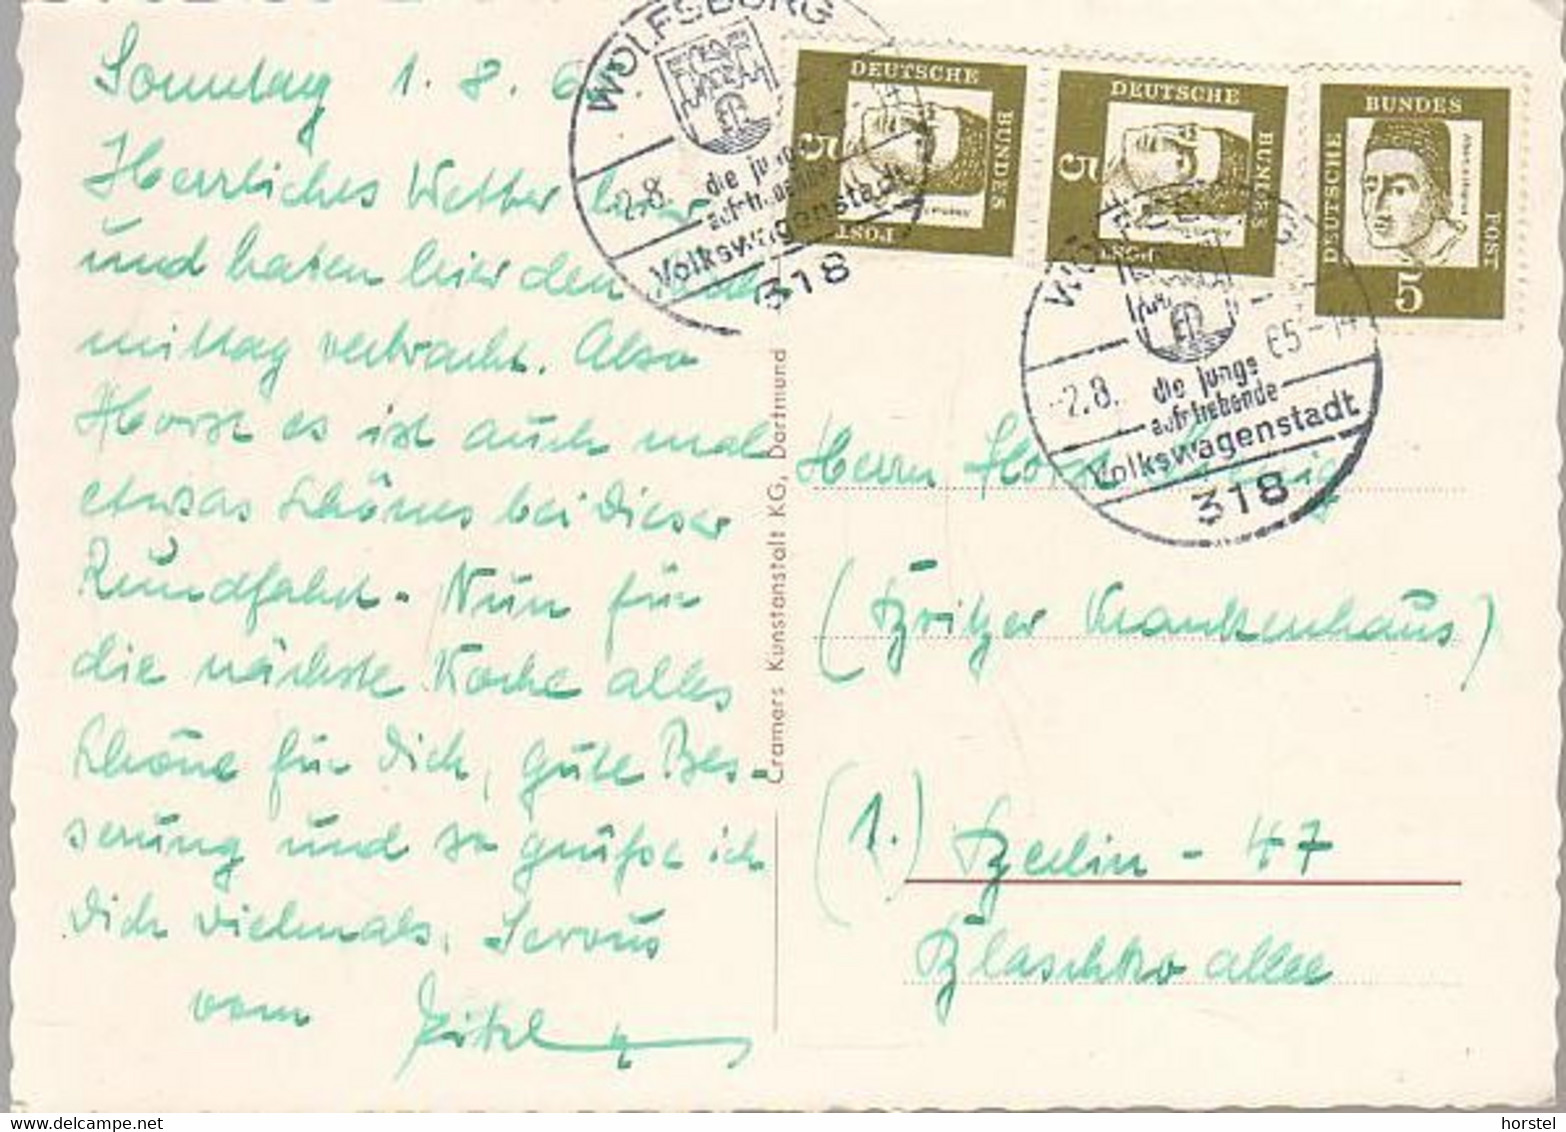 Sonntag 1. 8. 6
Herrliches Wetter
und haben hier den
mittag verbracht. Also
Horst es ist auch mal
etwas Schönes bei dieser
Rundfahrt. Nun für
die nächste Woche alles
Schöne für Dich, gute Bes-
serung und so grüße ich
Dich vielmals, Servus
vom
WOLFSBURG
-2.8.
die junge
aufstrebende
Volkswagenstadt
318
DEUTSCHE
BUNDES
POST
5
DEUTSCHE
BUNDES
POST
5
DEUTSCHE
BUNDES
POST
5
WOLFSBURG
-2.8. 65-14
die junge
aufstrebende
Volkswagenstadt
318
Cramers Kunstanstalt KG, Dortmund
Herrn Horst
(Britzer Krankenhaus)
(1.) Berlin - 47
Blaschko allee
horstel
delcampe.net